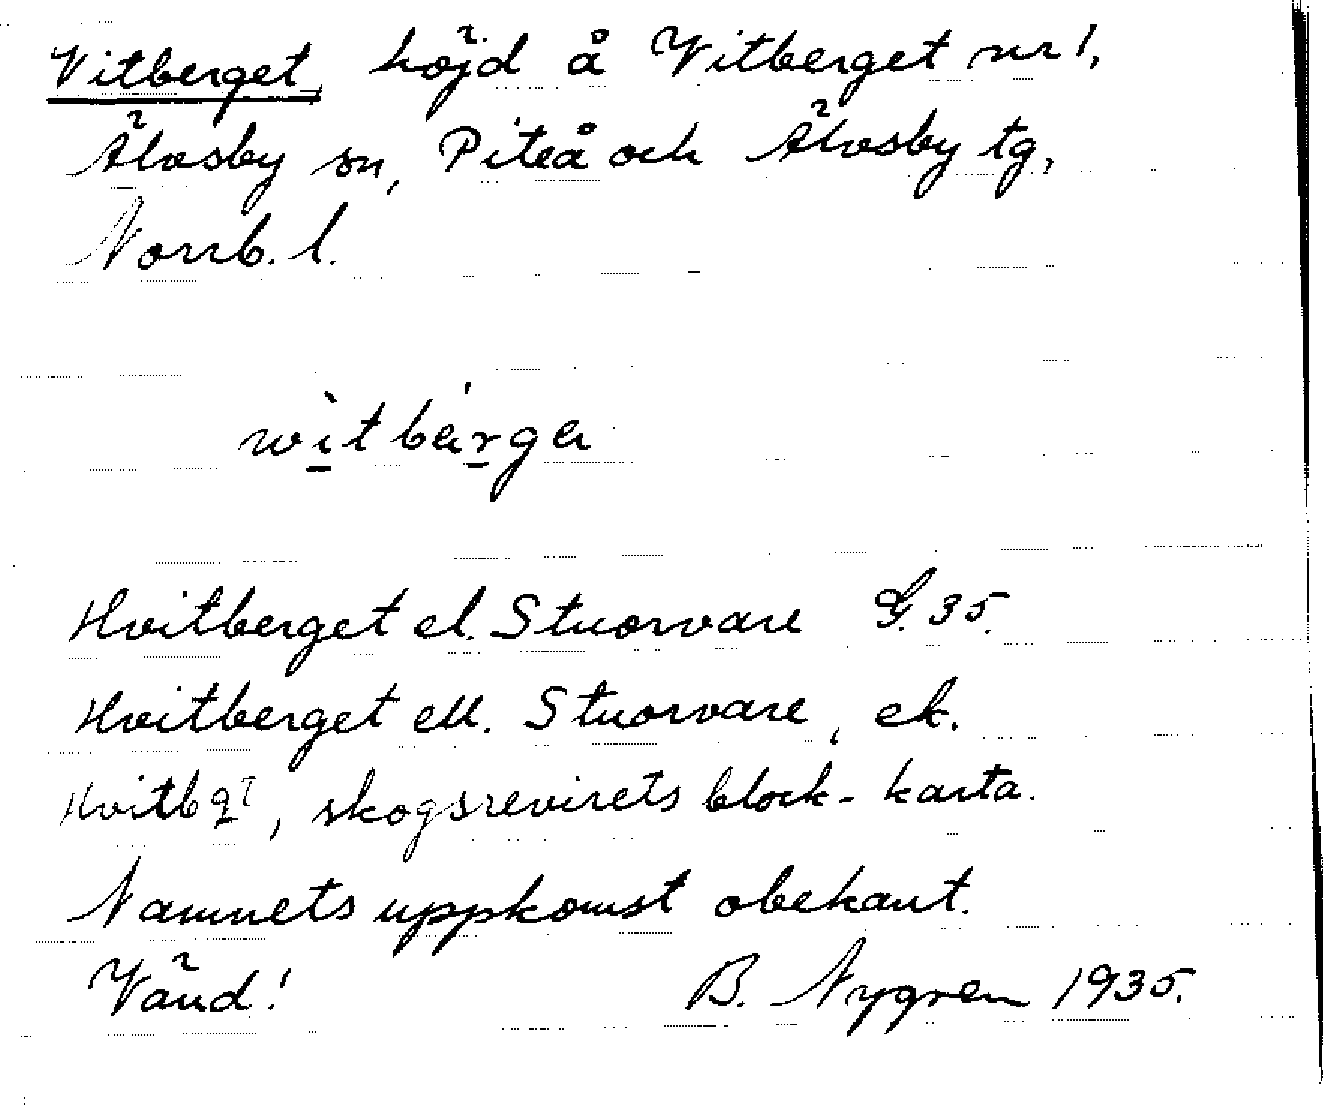 Vitberget, höjd å Vitberget nr 1,
Älvsby sn, Piteå och Älvsby tg,
Norrb. l.
wìtbá̈rga
Hvitberget el. Stuorvare G. 35.
Hvitberget ell. Stuorvare, ek.
Hvitbgt, skogsrevirets block-karta.
Namnets uppkomst obekant.
Vänd! B. Nygren 1935.